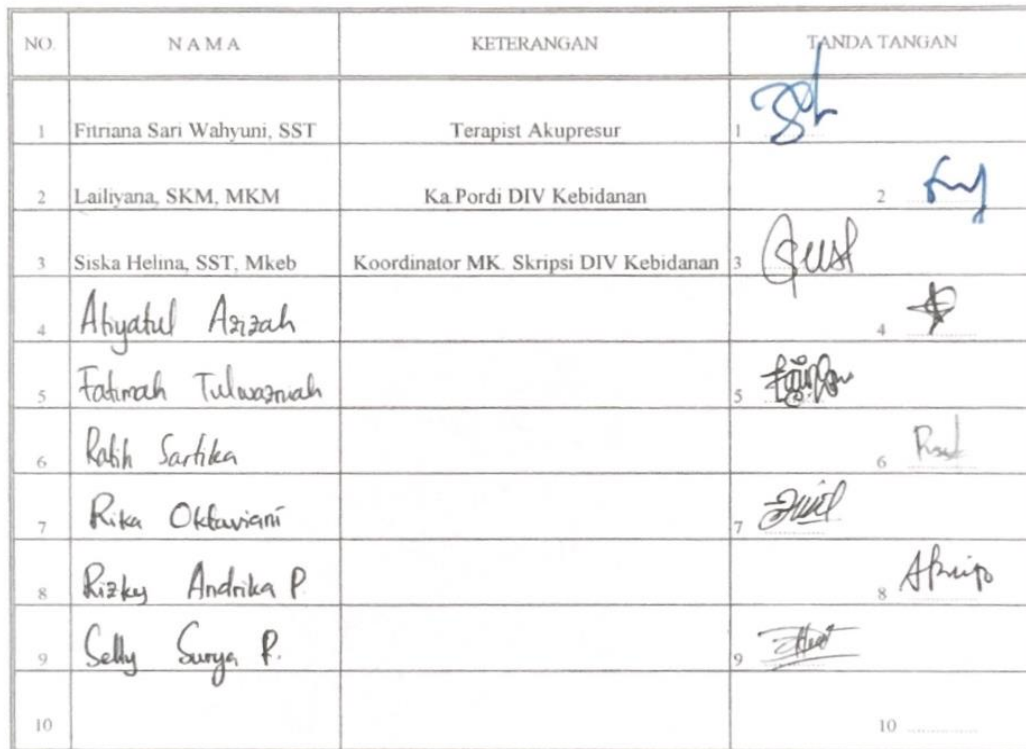 NO. N A M A KETERANGAN TANDA TANGAN
1 Fitriana Sari Wahyuni, SST Terapist Akupresur 1
2 Lailiyana, SKM, MKM Ka.Pordi DIV Kebidanan 2
3 Siska Helina, SST, Mkeb Koordinator MK. Skripsi DIV Kebidanan 3
4 Atiyatul Azizah 4
5 Fatimah Tulwazniah 5
6 Ratih Sartika 6
7 Rika Oktaviani 7
8 Rizky Andrika P. 8
9 Selly Surya P. 9
10 10